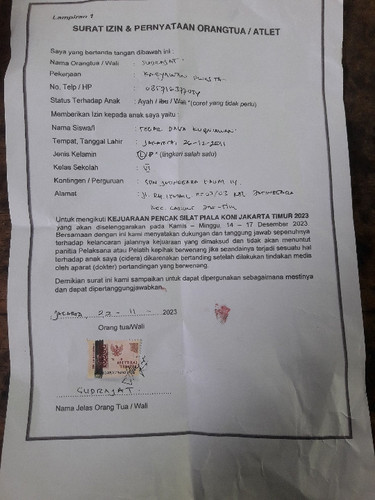 Lampiran 1
SURAT IZIN & PERNYATAAN ORANGTUA / ATLET
Saya yang bertanda tangan dibawah ini :
Nama Orangtua / Wali : SUDRAJAT
Pekerjaan : KARYAWAN SWASTA
No. Telp / HP :
Status Terhadap Anak : Ayah / Ibu / Wali *(coret yang tidak perlu)
Memberikan Izin kepada anak saya yaitu :
Nama Siswa/i :
Tempat, Tanggal Lahir : JAKARTA, 26-12-2011
Jenis Kelamin : L/P *(lingkari salah satu)
Kelas Sekolah : VI
Kontingen / Perguruan : SDN JATINEGARA KAUM
Alamat :
Untuk mengikuti KEJUARAAN PENCAK SILAT PIALA KONI JAKARTA TIMUR 2023
yang akan diselenggarakan pada Kamis – Minggu, 14 – 17 Desember 2023.
Bersamaan dengan ini kami menyatakan dukungan dan tanggung jawab sepenuhnya
terhadap kelancaran jalannya kejuaraan yang dimaksud dan tidak akan menuntut
panitia Pelaksana atau Pelatih kepihak berwenang jika seandainya terjadi sesuatu hal
terhadap anak saya (cidera) dikarenakan bertanding setelah dilakukan tindakan medis
oleh aparat (dokter) pertandingan yang berwenang.
Demikian surat ini kami sampaikan untuk dapat dipergunakan sebagaimana mestinya
dan dapat dipertanggungjawabkan.
Jakarta, 27 - 11 - 2023
Orang tua/Wali
SUDRAJAT
Nama Jelas Orang Tua / Wali